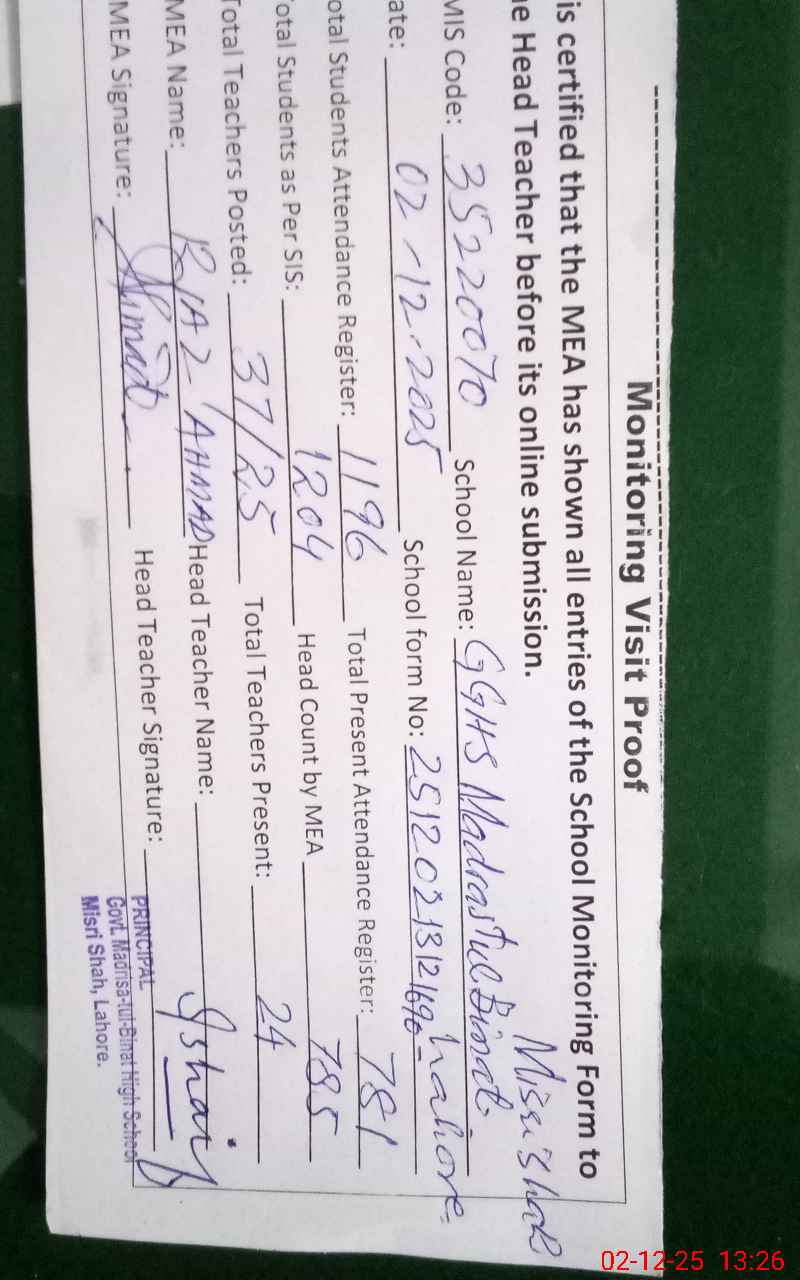 Monitoring Visit Proof
is certified that the MEA has shown all entries of the School Monitoring Form to
e Head Teacher before its online submission.
MIS Code: 35220070 School Name: GGHS Madrastul Binat Misri Shah Lahore.
ate: 02-12-2025 School form No:
otal Students Attendance Register: 1196 Total Present Attendance Register: 781
otal Students as Per SIS: 1204 Head Count by MEA 785
Total Teachers Posted: 37/25 Total Teachers Present: 24
MEA Name: RIAZ AHMAD Head Teacher Name:
MEA Signature: Head Teacher Signature:
PRINCIPAL
Govt. Madrisa-tul-Binat High School
Misri Shah, Lahore.
02-12-25 13:26